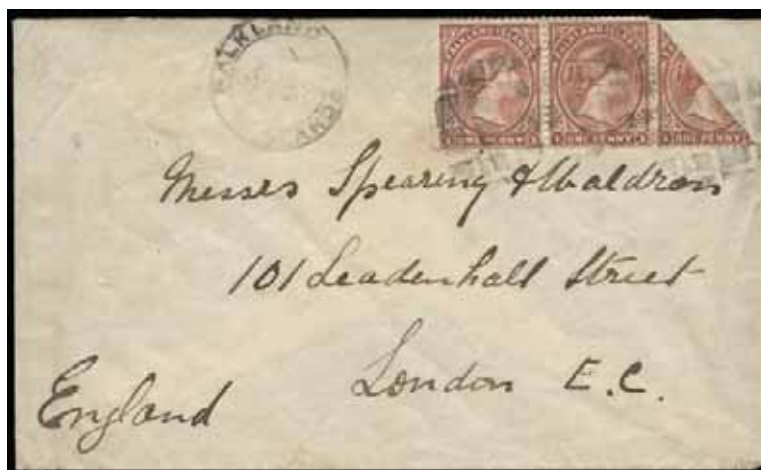 FALKLAND ISLANDS
FALKLAND ISLANDS
ONE PENNY ONE PENNY ONE PENNY
FALKLAND
Messrs Spearing & Waldron
101 Leadenhall Street
London E.C.
England